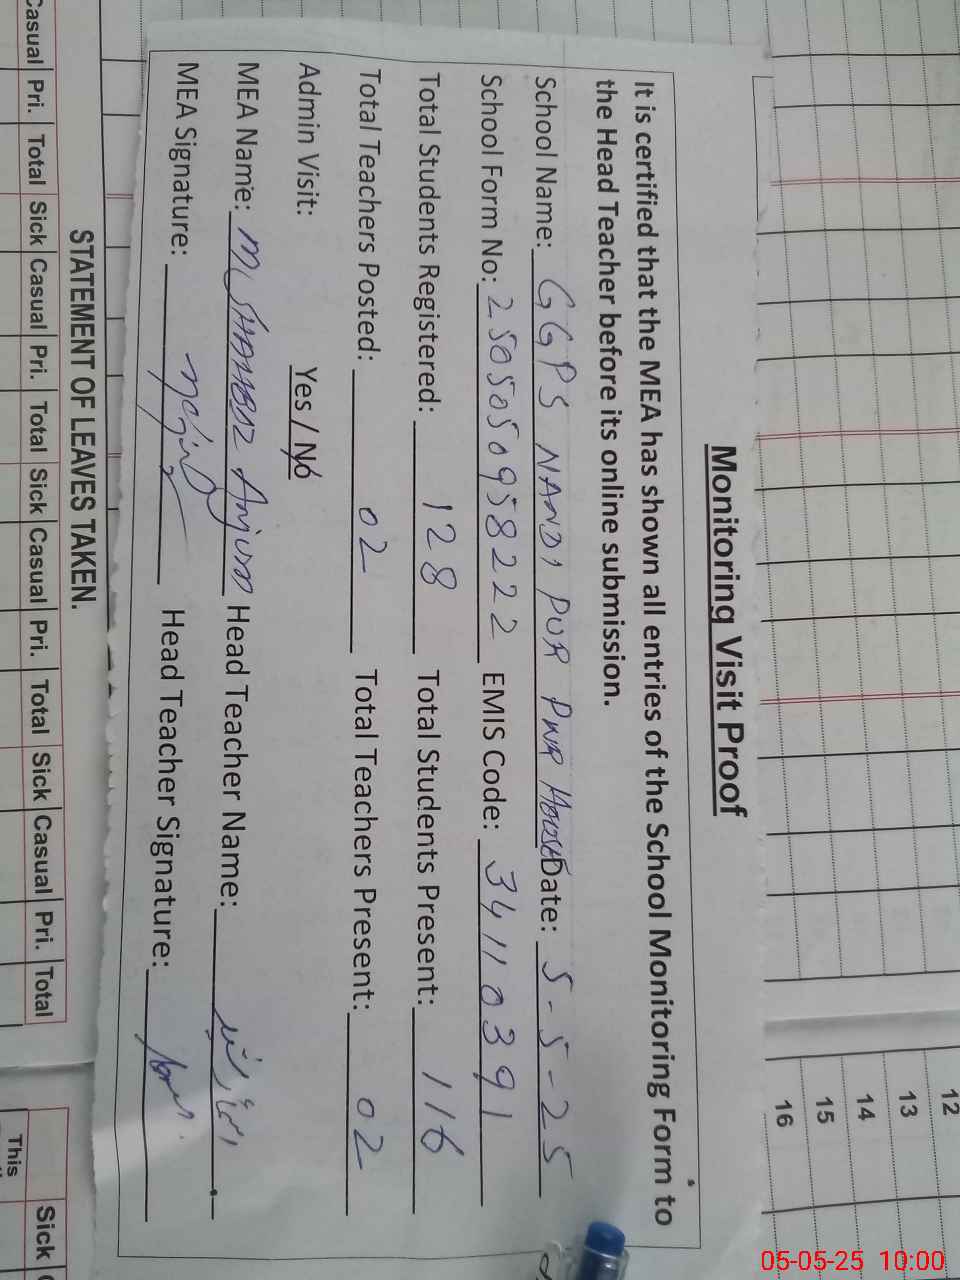 Monitoring Visit Proof
It is certified that the MEA has shown all entries of the School Monitoring Form to
the Head Teacher before its online submission.
School Name: GGPS NANDI PUR PWR HOUSE Date: 5-5-25
School Form No: 2505050958222 EMIS Code: 34110391
Total Students Registered: 128 Total Students Present: 116
Total Teachers Posted: 02 Total Teachers Present: 02
Admin Visit: Yes / No
MEA Name: Anjum Head Teacher Name:
MEA Signature: Head Teacher Signature:
STATEMENT OF LEAVES TAKEN.
Casual Pri. Total Sick Casual Pri. Total Sick Casual Pri. Total Sick Casual Pri. Total
Sick
This
12
13
14
15
16
05-05-25 10:00